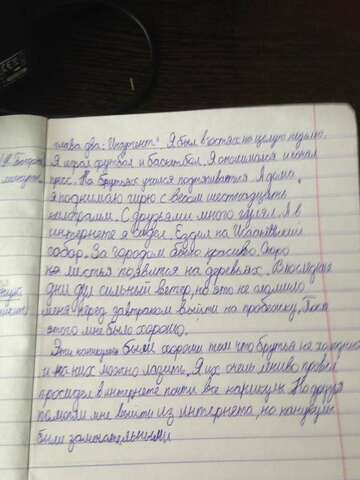 глава два: Я был в гостях на целую неделю.
Я играл футбол и баскетбол. Я отжимался и качал
пресс. На брусьях учился подтягиваться. А дома
я поднимаю гирю с весом шестнадцать
килограмм. С друзьями много гулял. А в
интернете я сидел. Ездил на Исаакиевский
собор. За городом было красиво. Скоро
на листья появится на деревьях. В последние
дни дул сильный ветер, но это не мешало
меня перед завтраком выйти на пробежку. После
этого мне было хорошо.
Эти каникулы были хороши тем что брусья не холодные
и на них можно лазить. Я их очень лениво провёл
просидел в интернете почти все каникулы. Но друзья
помогли мне выйти из интернета, но каникулы
были замечательными